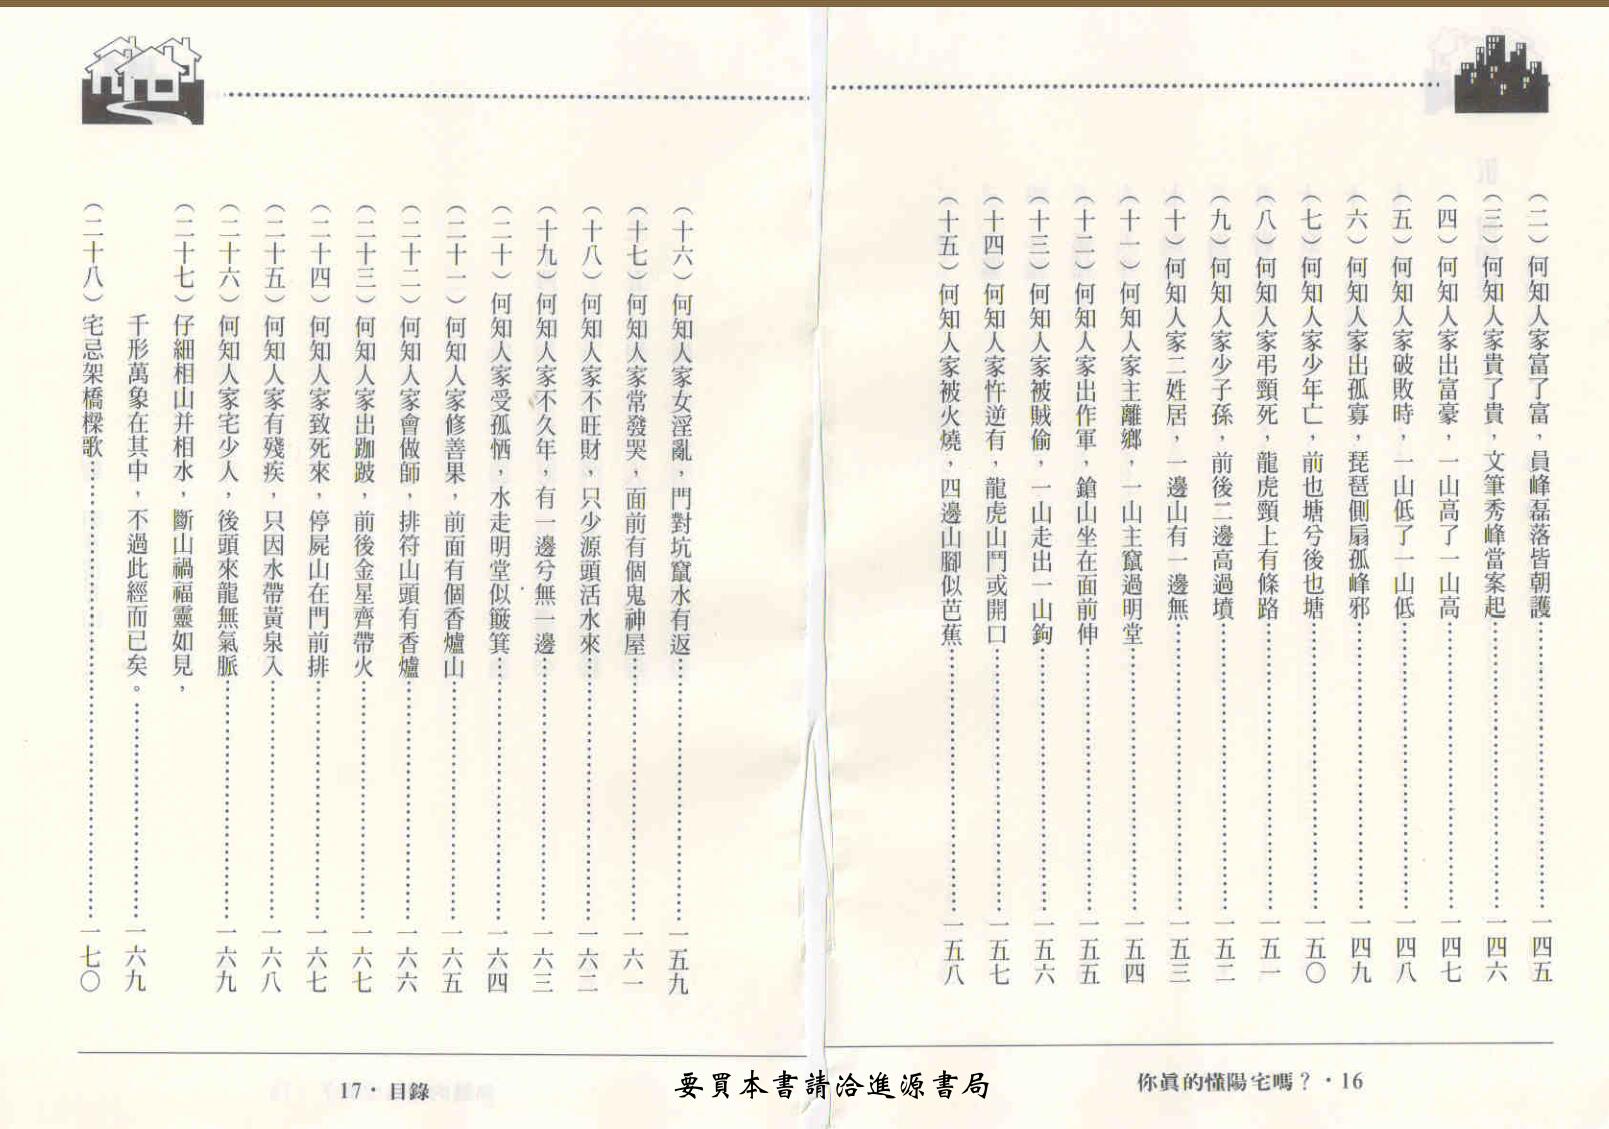 (二)何知人家富了富，員峰磊落皆朝護……一四五
(三)何知人家貴了貴，文筆秀峰當案起……一四六
(四)何知人家出富豪，一山高了一山高……一四七
(五)何知人家破敗時，一山低了一山低……一四八
(六)何知人家出孤寡，琵琶側扇孤峰邪……一四九
(七)何知人家少年亡，前也塘兮後也塘……一五〇
(八)何知人家弔頸死，龍虎頸上有條路……一五一
(九)何知人家少子孫，前後二邊高過墳……一五二
(十)何知人家二姓居，一邊山有一邊無……一五三
(十一)何知人家主離鄉，一山主竄過明堂……一五四
(十二)何知人家出作軍，鎗山坐在面前伸……一五五
(十三)何知人家被賊偷，一山走出一山鉤……一五六
(十四)何知人家忤逆有，龍虎山鬥或開口……一五七
(十五)何知人家被火燒，四邊山腳似芭蕉……一五八
你眞的懂陽宅嗎？·16
(十六)何知人家女淫亂，門對坑竄水有返……一五九
(十七)何知人家常發哭，面前有個鬼神屋……一六一
(十八)何知人家不旺財，只少源頭活水來……一六二
(十九)何知人家不久年，有一邊兮無一邊……一六三
(二十)何知人家受孤恓，水走明堂似簸箕……一六四
(二十一)何知人家修善果，前面有個香爐山……一六五
(二十二)何知人家會做師，排符山頭有香爐……一六六
(二十三)何知人家出跏跛，前後金星齊帶火……一六七
(二十四)何知人家致死來，停屍山在門前排……一六七
(二十五)何知人家有殘疾，只因水帶黃泉入……一六八
(二十六)何知人家宅少人，後頭來龍無氣脈……一六九
(二十七)仔細相山并相水，斷山禍福靈如見，
千形萬象在其中，不過此經而已矣。……一六九
(二十八)宅忌架橋樑歌……一七〇
17·目錄
要買本書請洽進源書局